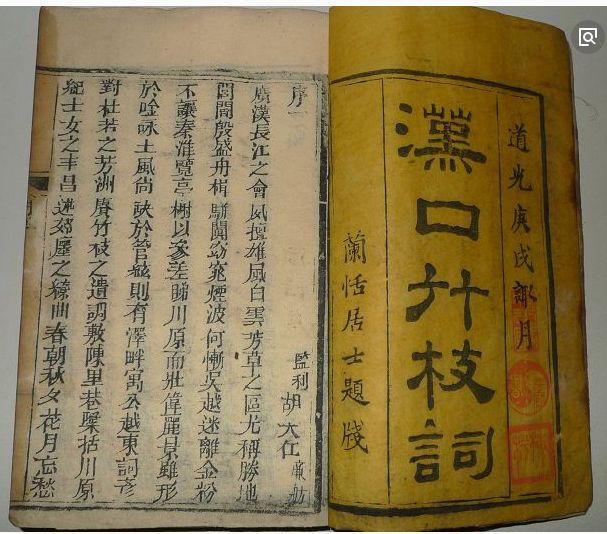 道光庚戌諏月
漢口竹枝詞
蘭恬居士題牋
序一
監利胡大任蕉舫
廣漢長江之會夙擅雄風白雲芳草之區尤稱勝地
閭閻殷盛舟楫駢闐窈窕煙波何慚吳越迷離金粉
不讓秦淮覽亭榭以參差睇川原而壯偉麗景雖形
於唫咏土風尚缺於管絃則有澤畔寓公越東詞彥
對杜若之芳洲賡竹枝之遺調敷陳里巷檃括川原
紀士女之丰昌述郊廛之緣曲春朝秋夕花月忘愁